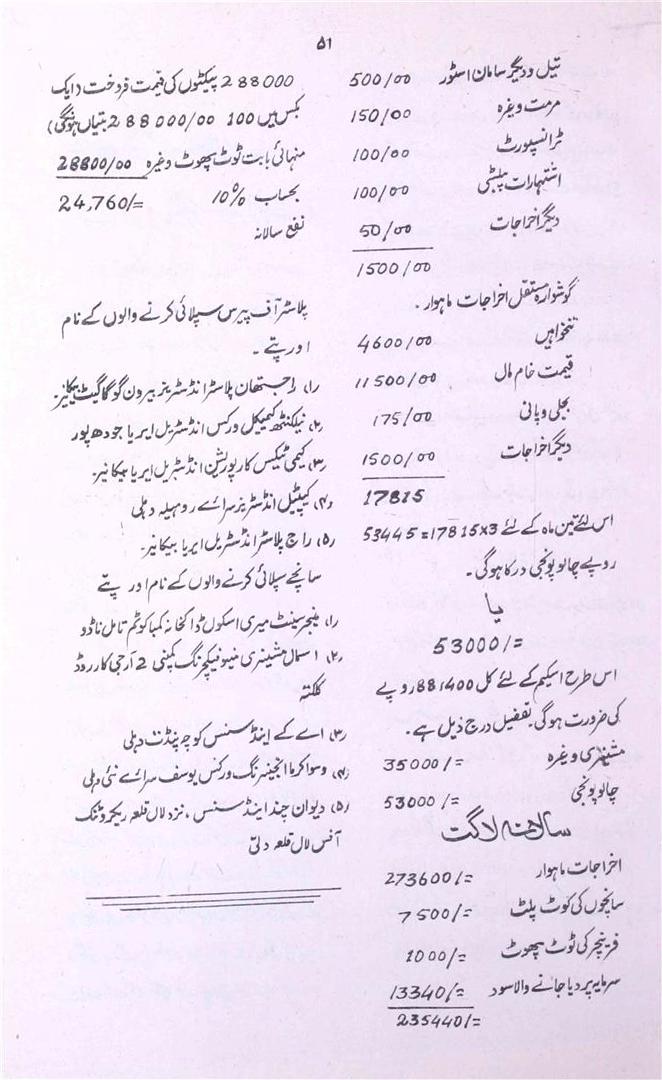 ۵۱
تیل و دیگر سامان اسٹور 500/00
مرمت وغیرہ 150/00
ٹرانسپورٹ 100/00
اشتہارات پبلسٹی 100/00
دیگر اخراجات 50/00
1500/00
گوشوارہ مستقل اخراجات ماہوار.
تنخواہیں 4600/00
قیمت خام مال 11500/00
بجلی و پانی 175/00
دیگر اخراجات 1500/00
17815
اس لئے تین ماہ کے لئے 17815x3=53445
روپے چالو پونجی درکار ہوگی۔
یا
53000/=
اس طرح اسکیم کے لئے کل 881400 روپے
کی ضرورت ہوگی۔ تفصیل درج ذیل ہے.
مشینری وغیرہ 35000/=
چالو پونجی 53000/=
سالانہ لاگت
اخراجات ماہوار 273600/=
سانچوں کی ٹوٹ پلٹ 7500/=
فرنیچر کی ٹوٹ پھوٹ 1000/=
سرمایہ پر دیا جانے والا سود 13340/=
235440/=
288000 پیکٹوں کی قیمت فروخت (ایک
بکس میں 100 بتیاں ہونگی) 288000/00
منہائی بابت ٹوٹ پھوٹ وغیرہ 28800/00
بحساب 10% 24,760/=
نفع سالانہ
پلاسٹر آف پیرس سپلائی کرنے والوں کے نام
اور پتے۔
(۱) راجستھان پلاسٹر انڈسٹریز بیرون گوگا گیٹ بیکانیر
(۲) نیلکنٹھ کیمیکل ورکس انڈسٹریل ایریا جودھپور
(۳) کیمی ٹیکس کارپوریشن انڈسٹریل ایریا بیکانیر۔
(۴) کیپٹیل انڈسٹریز سرائے روہیلہ دہلی
(۵) راج پلاسٹر انڈسٹریل ایریا بیکانیر۔
سانچے سپلائی کرنے والوں کے نام اور پتے
(۱) منیجر سینٹ میری اسکول ڈاکخانہ کمباکونم تامل ناڈو
(۲) اسمال مشینری مینوفیکچرنگ کمپنی 2 آر جی کار روڈ
کلکتہ
(۳) اے کے اینڈ سنس کوچہ پنڈت دہلی
(۴) وسوا کرما انجینرنگ ورکس یوسف سرائے نئی دہلی
(۵) دیوان چند اینڈ سنس، نزد لال قلعہ
آفس لال قلعہ دلی